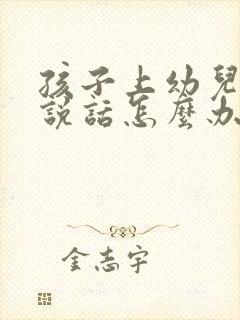 孩子上幼兒
說話怎麼办
金志宇